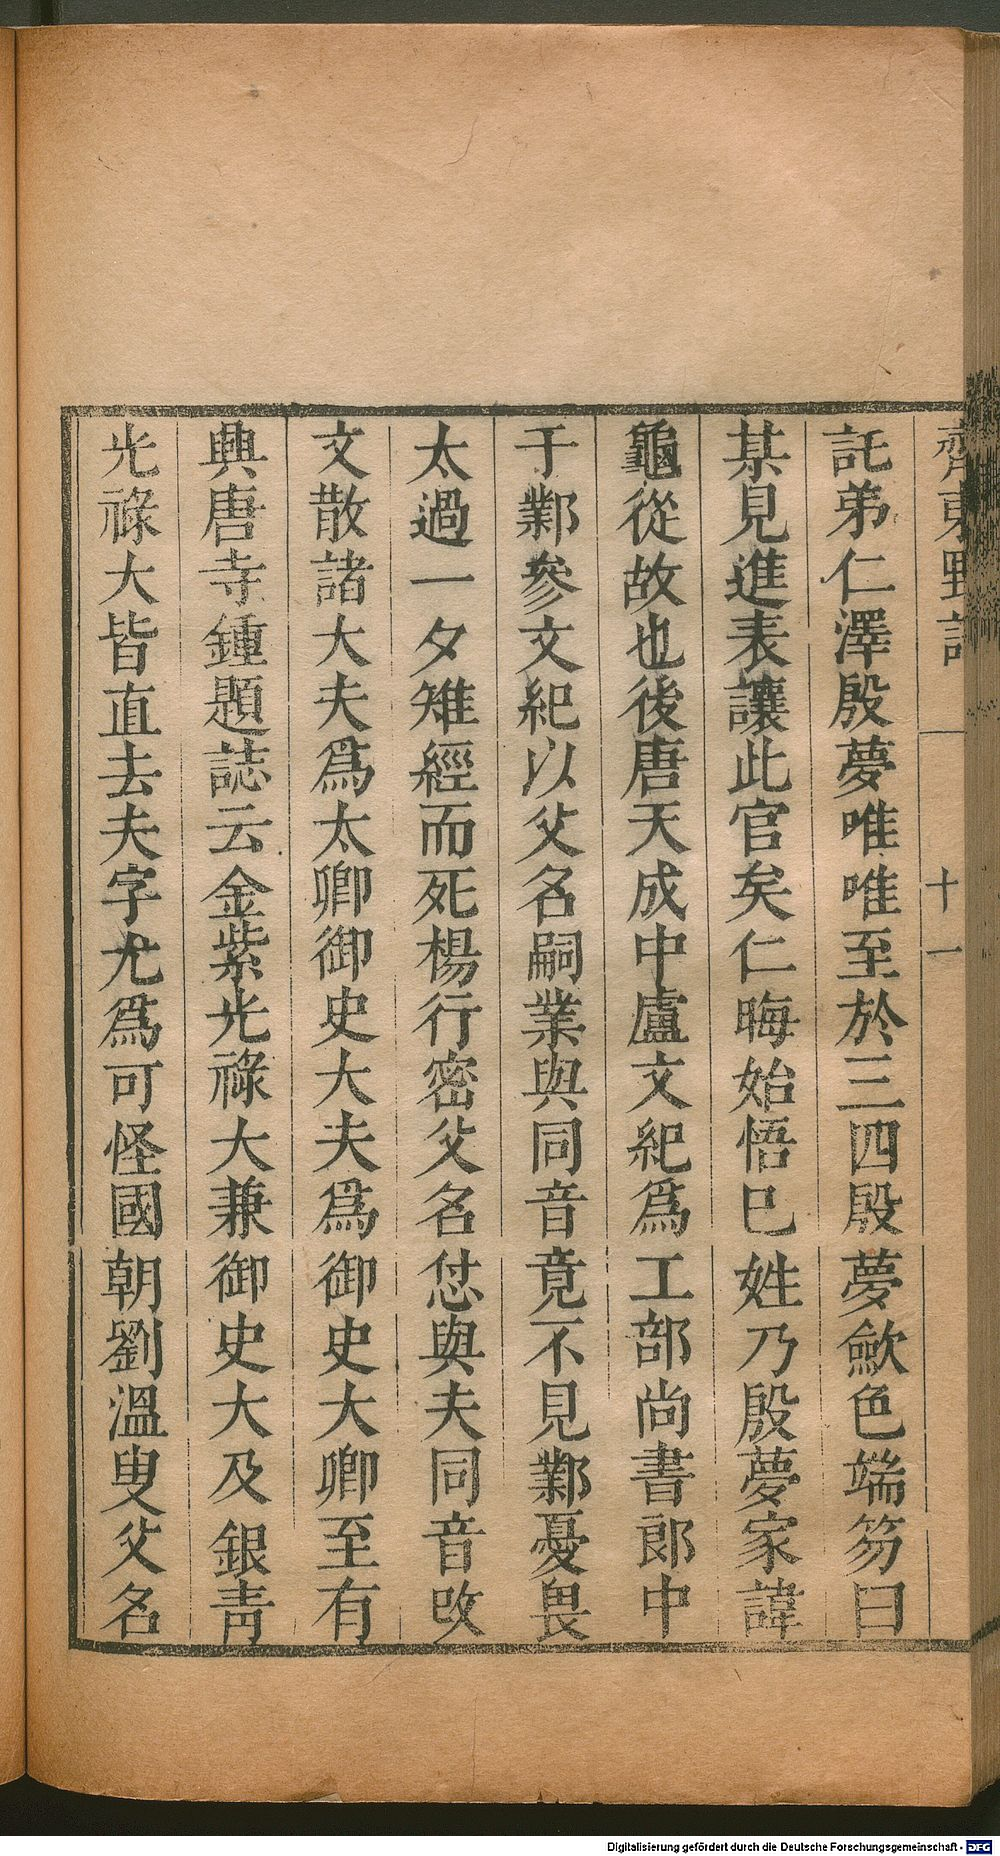 齊東野語
十一
託弟仁澤殷夢唯唯至於三四殷夢歛色端笏曰
某見進表讓此官矣仁晦始悟巳姓乃殷夢家諱
龜從故也後唐天成中盧文紀爲工部尚書郎中
于鄴參文紀以父名嗣業與同音竟不見鄴憂畏
太過一夕雉經而死楊行密父名怤與夫同音改
文散諸大夫爲太卿御史大夫爲御史大卿至有
興唐寺鍾題誌云金紫光祿大兼御史大及銀靑
光祿大皆直去夫字尤爲可怪國朝劉溫叟父名
Digitalisierung gefördert durch die Deutsche Forschungsgemeinschaft - DFG